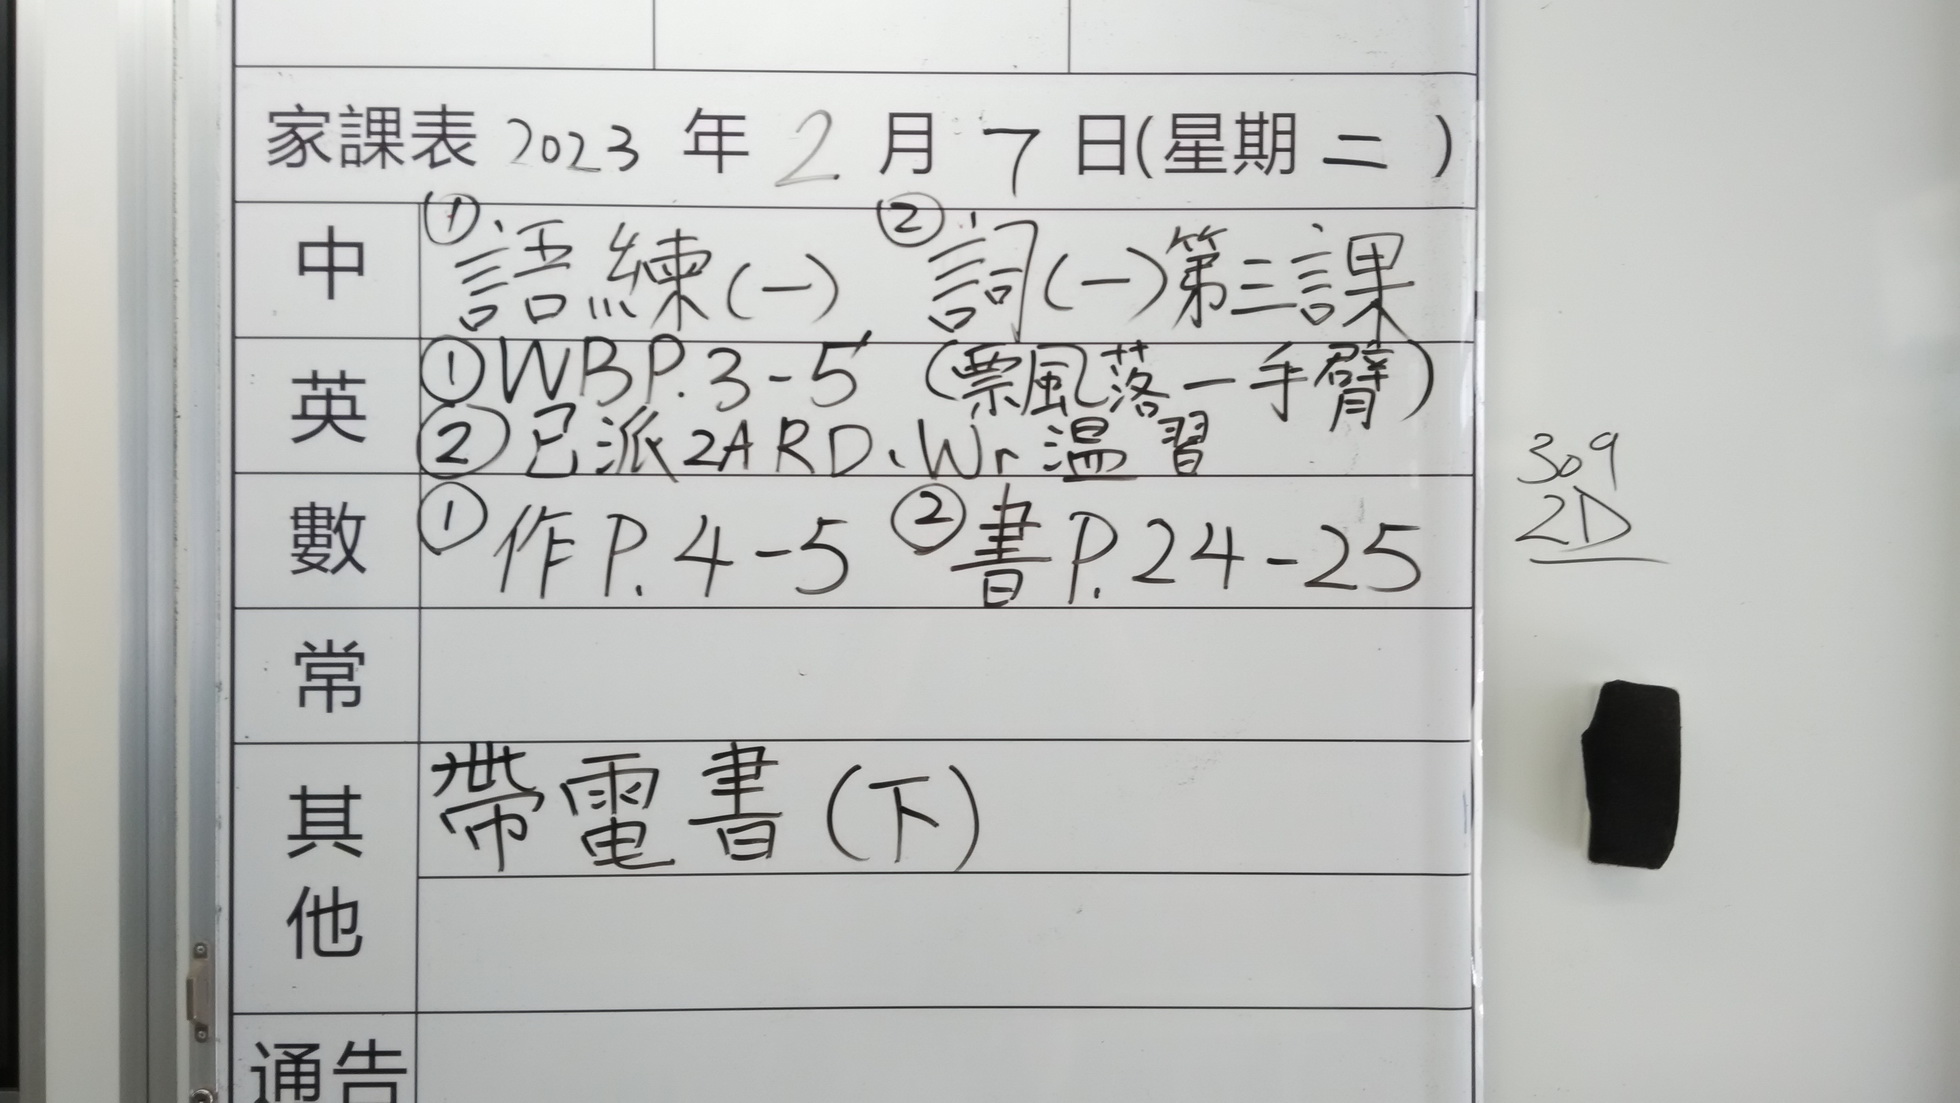 家課表 2023 年 2 月 7 日(星期 二 )
中 ①語練(一) ②詞(一)第三課
英 ①WBP.3-5 (票風落一手臂)
②已派2ARD、Wr溫習
數 ①作P.4-5 ②書P.24-25
常
其他 帶電書(下)
通告
309
2D